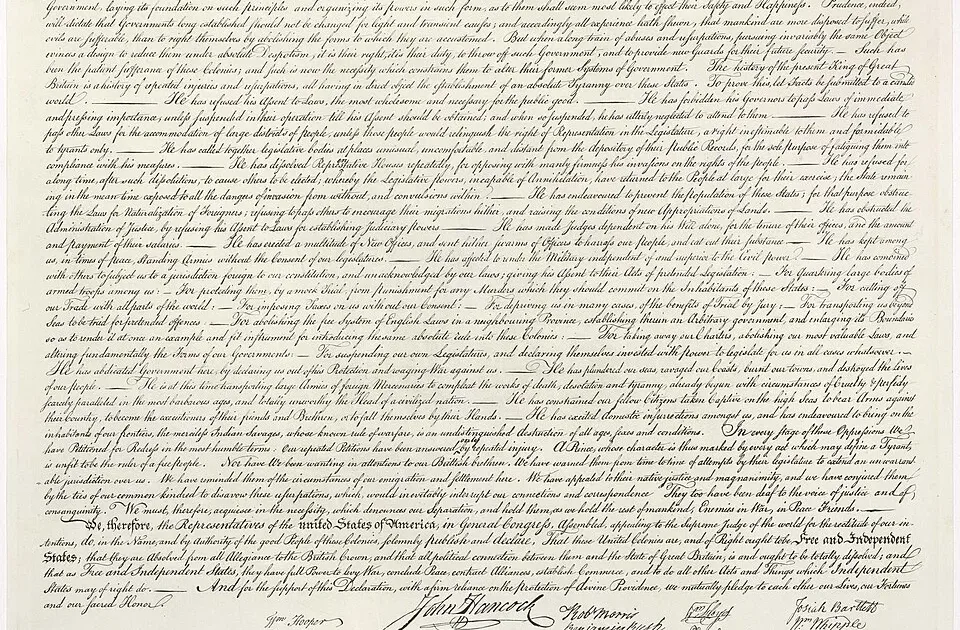 Government, laying its foundation on such principles and organizing its powers in such form, as to them shall seem most likely to effect their Safety and Happiness. Prudence, indeed,
will dictate that Governments long established should not be changed for light and transient causes; and accordingly all experience hath shewn, that mankind are more disposed to suffer, while
evils are sufferable, than to right themselves by abolishing the forms to which they are accustomed. But when a long train of abuses and usurpations, pursuing invariably the same Object
evinces a design to reduce them under absolute Despotism, it is their right, it is their duty, to throw off such Government, and to provide new Guards for their future security. — Such has
been the patient sufferance of these Colonies; and such is now the necessity which constrains them to alter their former Systems of Government. The history of the present King of Great
Britain is a history of repeated injuries and usurpations, all having in direct object the establishment of an absolute Tyranny over these States. To prove this, let Facts be submitted to a candid
world. — He has refused his Assent to Laws, the most wholesome and necessary for the public good. — He has forbidden his Governors to pass Laws of immediate
and pressing importance, unless suspended in their operation till his Assent should be obtained; and when so suspended, he has utterly neglected to attend to them. — He has refused to
pass other Laws for the accommodation of large districts of people, unless those people would relinquish the right of Representation in the Legislature, a right inestimable to them and formidable
to tyrants only. — He has called together legislative bodies at places unusual, uncomfortable, and distant from the depository of their public Records, for the sole purpose of fatiguing them into
compliance with his measures. — He has dissolved Representative Houses repeatedly, for opposing with manly firmness his invasions on the rights of the people. — He has refused for
a long time, after such dissolutions, to cause others to be elected; whereby the Legislative powers, incapable of Annihilation, have returned to the People at large for their exercise; the State remain-
ing in the mean time exposed to all the dangers of invasion from without, and convulsions within. — He has endeavoured to prevent the population of these States; for that purpose obstruc-
ting the Laws for Naturalization of Foreigners; refusing to pass others to encourage their migrations hither, and raising the conditions of new Appropriations of Lands. — He has obstructed the
Administration of Justice, by refusing his Assent to Laws for establishing Judiciary powers — He has made Judges dependent on his Will alone, for the tenure of their offices, and the amount
and payment of their salaries. — He has erected a multitude of New Offices, and sent hither swarms of Officers to harrass our people, and eat out their substance — He has kept among
us, in times of peace, Standing Armies without the Consent of our legislatures. — He has affected to render the Military independent of and superior to the Civil power — He has combined
with others to subject us to a jurisdiction foreign to our constitution, and unacknowledged by our laws; giving his Assent to their Acts of pretended Legislation: — For Quartering large bodies of
armed troops among us: — For protecting them, by a mock Trial, from punishment for any Murders which they should commit on the Inhabitants of these States: — For cutting off
our Trade with all parts of the world: — For imposing Taxes on us without our Consent: — For depriving us in many cases, of the benefits of Trial by Jury: — For transporting us beyond
Seas to be tried for pretended offences — For abolishing the free System of English Laws in a neighbouring Province, establishing therein an Arbitrary government, and enlarging its Boundaries
so as to render it at once an example and fit instrument for introducing the same absolute rule into these Colonies: — For taking away our Charters, abolishing our most valuable Laws, and
altering fundamentally the Forms of our Governments: — For suspending our own Legislatures, and declaring themselves invested with power to legislate for us in all cases whatsoever. —
He has abdicated Government here, by declaring us out of his Protection and waging War against us. — He has plundered our seas, ravaged our Coasts, burnt our towns, and destroyed the lives
of our people. — He is at this time transporting large Armies of foreign Mercenaries to compleat the works of death, desolation and tyranny, already begun with circumstances of Cruelty & perfidy
scarcely paralleled in the most barbarous ages, and totally unworthy the Head of a civilized nation. — He has constrained our fellow Citizens taken Captive on the high Seas to bear Arms against
their Country, to become the executioners of their friends and Brethren, or to fall themselves by their Hands. — He has excited domestic insurrections amongst us, and has endeavoured to bring on the
inhabitants of our frontiers, the merciless Indian Savages, whose known rule of warfare, is an undistinguished destruction of all ages, sexes and conditions. In every stage of these Oppressions We
have Petitioned for Redress in the most humble terms: Our repeated Petitions have been answered only by repeated injury. A Prince, whose character is thus marked by every act which may define a Tyrant,
is unfit to be the ruler of a free people. Nor have We been wanting in attentions to our Brittish brethren. We have warned them from time to time of attempts by their legislature to extend an unwarrant-
able jurisdiction over us. We have reminded them of the circumstances of our emigration and settlement here. We have appealed to their native justice and magnanimity, and we have conjured them
by the ties of our common kindred to disavow these usurpations, which, would inevitably interrupt our connections and correspondence They too have been deaf to the voice of justice and of
consanguinity. We must, therefore, acquiesce in the necessity, which denounces our Separation, and hold them, as we hold the rest of mankind, Enemies in War, in Peace Friends. —
We, therefore, the Representatives of the united States of America, in General Congress, Assembled, appealing to the Supreme Judge of the world for the rectitude of our in-
tentions, do, in the Name, and by Authority of the good People of these Colonies, solemnly publish and declare, That these United Colonies are, and of Right ought to be, Free and Independent
States; that they are Absolved from all Allegiance to the British Crown, and that all political connection between them and the State of Great Britain, is and ought to be totally dissolved; and
that as Free and Independent States, they have full Power to levy War, conclude Peace, contract Alliances, establish Commerce, and to do all other Acts and Things which Independent
States may of right do. — And for the support of this Declaration, with a firm reliance on the protection of divine Providence, we mutually pledge to each other our Lives, our Fortunes
and our sacred Honor.
Wm Hooper John Hancock Robt Morris Josiah Bartlett
Benjamin Rush Wm Whipple